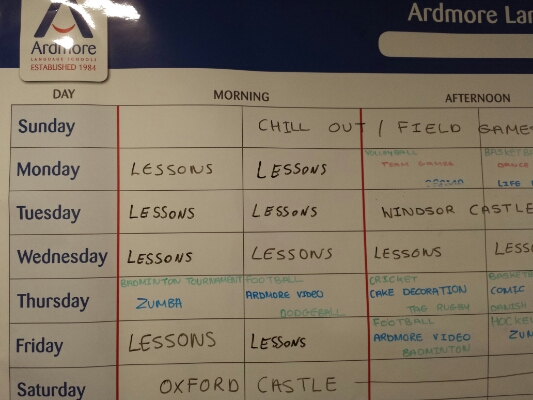 Ardmore Lan
Ardmore
LANGUAGE SCHOOLS
ESTABLISHED 1984
DAY MORNING AFTERNOON
Sunday CHILL OUT / FIELD GAMES
Monday LESSONS LESSONS
VOLLEYBALL
TEAM GAMES
DRAMA
BASKETB
DANCE
LIFE
Tuesday LESSONS LESSONS WINDSOR CASTLE
Wednesday LESSONS LESSONS LESSONS LESS
Thursday
BADMINTON TOURNAMENT
ZUMBA
FOOTBALL
ARDMORE VIDEO
DODGEBALL
CRICKET
CAKE DECORATION
TAG RUGBY
BASKETB
COMIC
DANISH
Friday LESSONS LESSONS
FOOTBALL
ARDMORE VIDEO
BADMINTON
HOCKE
ZUM
Saturday OXFORD CASTLE